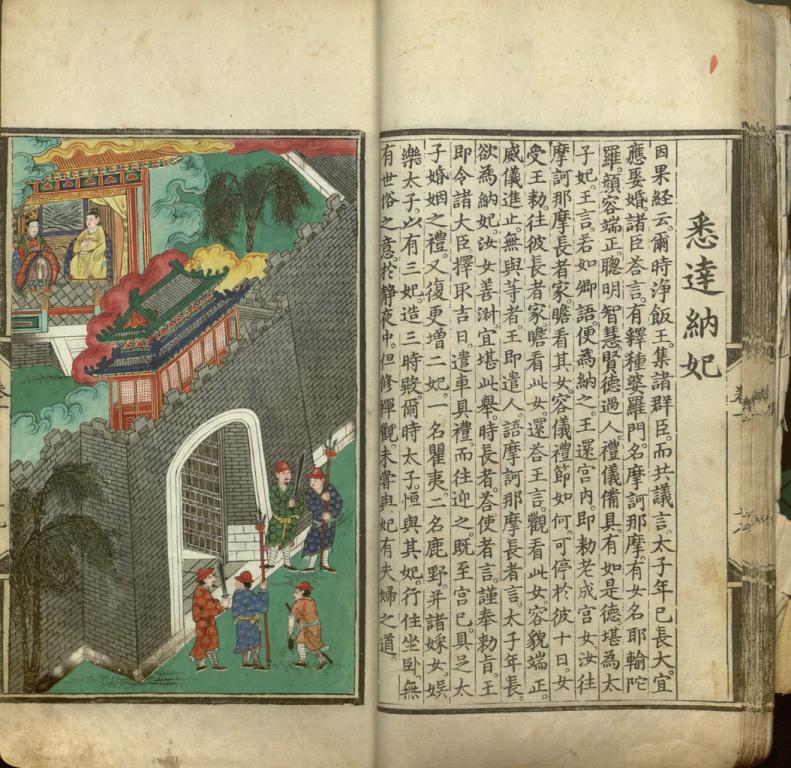 悉達納妃
因果経云。爾時淨飯王。集諸群臣。而共議言。太子年已長大。宜
應娶婚。諸臣荅言。有釋種婆羅門。名摩訶那摩。有女名耶輸陀
羅。顏容端正。聰明智慧。賢德過人。禮儀備具。有如是德。堪為太
子妃。王言。若如卿語。便為納之。王還宮内。即勅老成宮女。汝往
摩訶那摩長者家。瞻看其女。容儀禮節如何。可停於彼十日。女
受王勅。往彼長者家。瞻看此女。還荅王言。觀看此女。容貌端正。
威儀進止。無與等者。王即遣人。語摩訶那摩長者言。太子年長。
欲為納妃。汝女善淑。宜堪此舉。時長者荅使者言。謹奉勅旨。王
即令諸大臣擇取吉日。遣車具禮。而往迎之。既至宮已。具足太
子婚姻之禮。又復更增二妃。一名瞿夷。二名鹿野。并諸婇女。娛
樂太子。以有三妃。造三時殿。爾時太子。恒與其妃。行住坐臥。無
有世俗之意。於靜夜中。但修禪觀。未嘗與妃有夫婦之道。